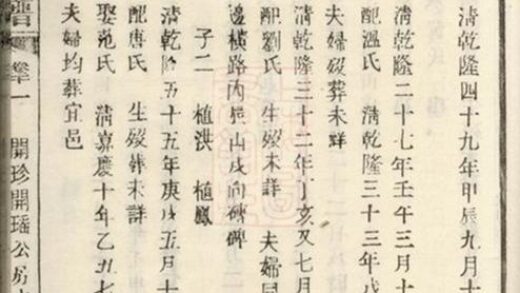 清乾隆四十九年甲辰九月十
清乾隆二十七年壬午三月十
配溫氏 清乾隆三十三年戊
夫婦歿葬未詳
清乾隆三十二年丁亥又七月
配劉氏 生歿未詳 夫婦同
邊橫路內辰山戌向磚碑
子二 植洪 植鳳
清乾隆五十五年庚戌五月十
配唐氏 生歿葬未詳
娶范氏 清嘉慶十年乙丑七
夫婦均葬宜邑
譜 卷一 開珍開瑤公房